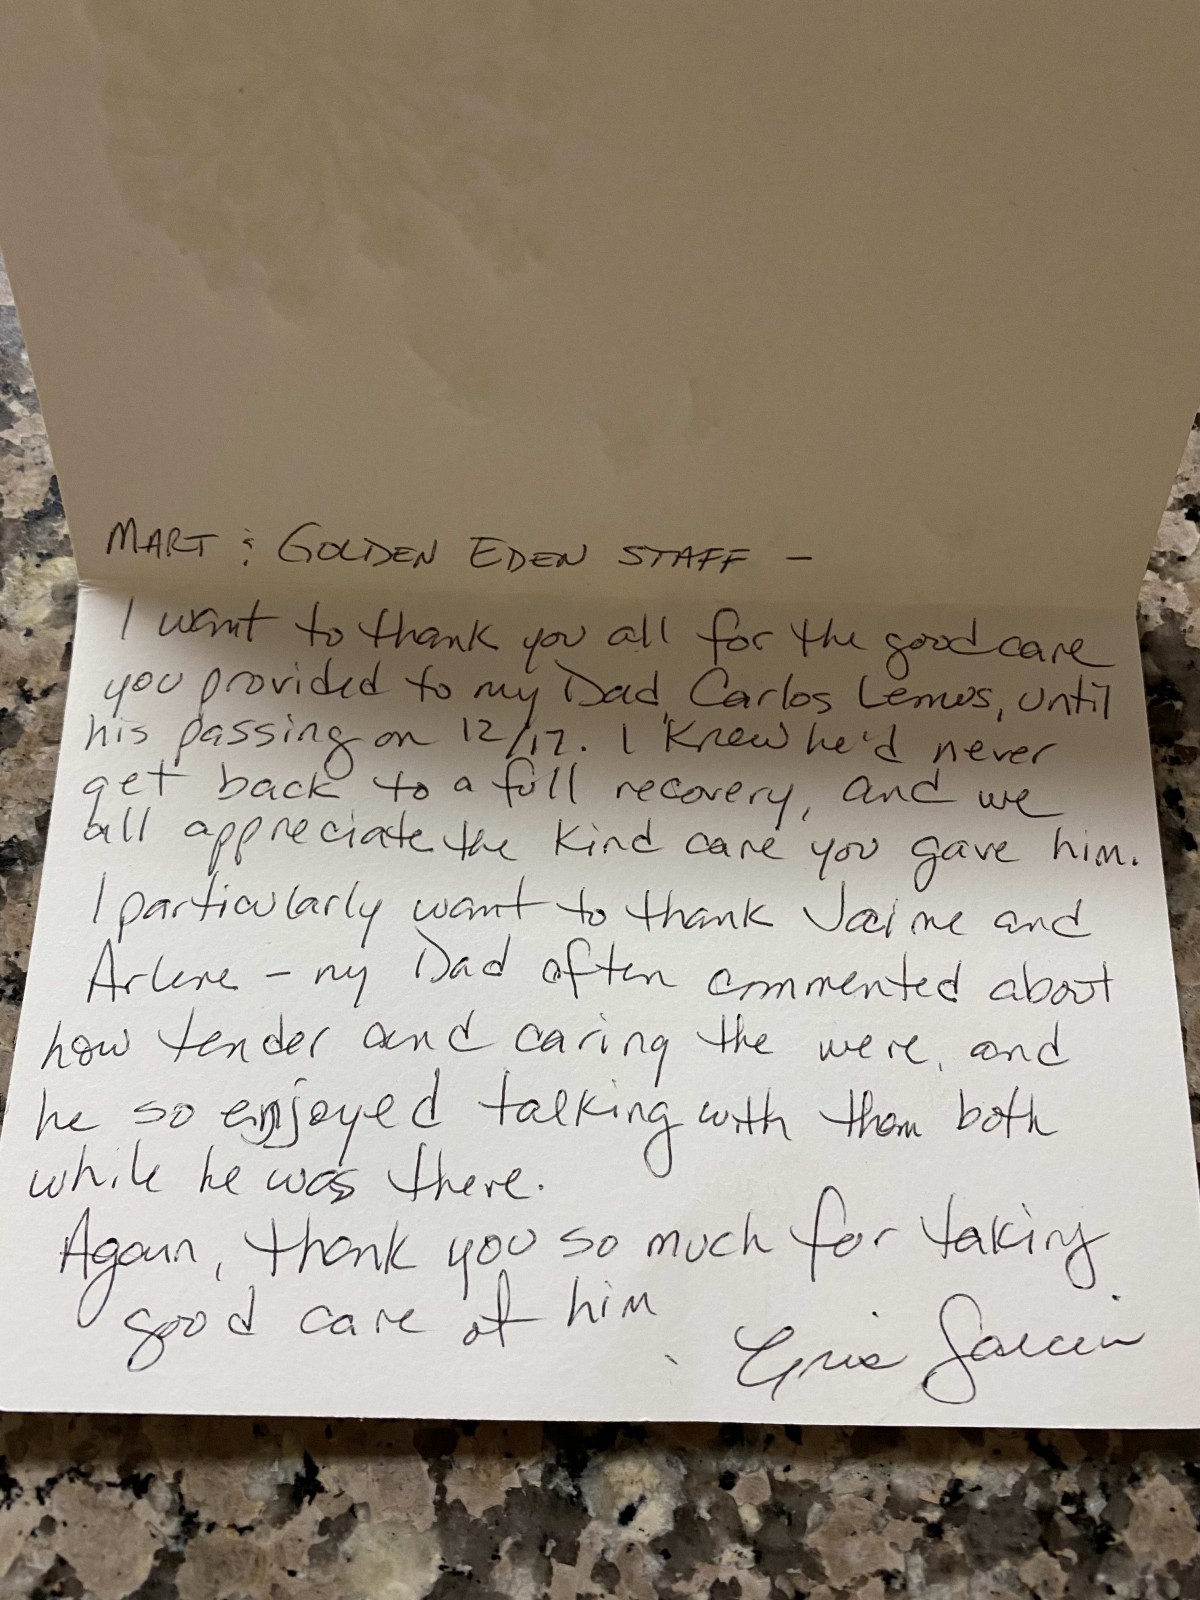 MART & GOLDEN EDEN STAFF –
I want to thank you all for the good care
you provided to my Dad, Carlos Lemus, until
his passing on 12/17. I knew he'd never
get back to a full recovery, and we
all appreciate the kind care you gave him.
I particularly want to thank Jaime and
Arlene – my Dad often commented about
how tender and caring the were, and
he so enjoyed talking with them both
while he was there.
Again, thank you so much for taking
good care of him.